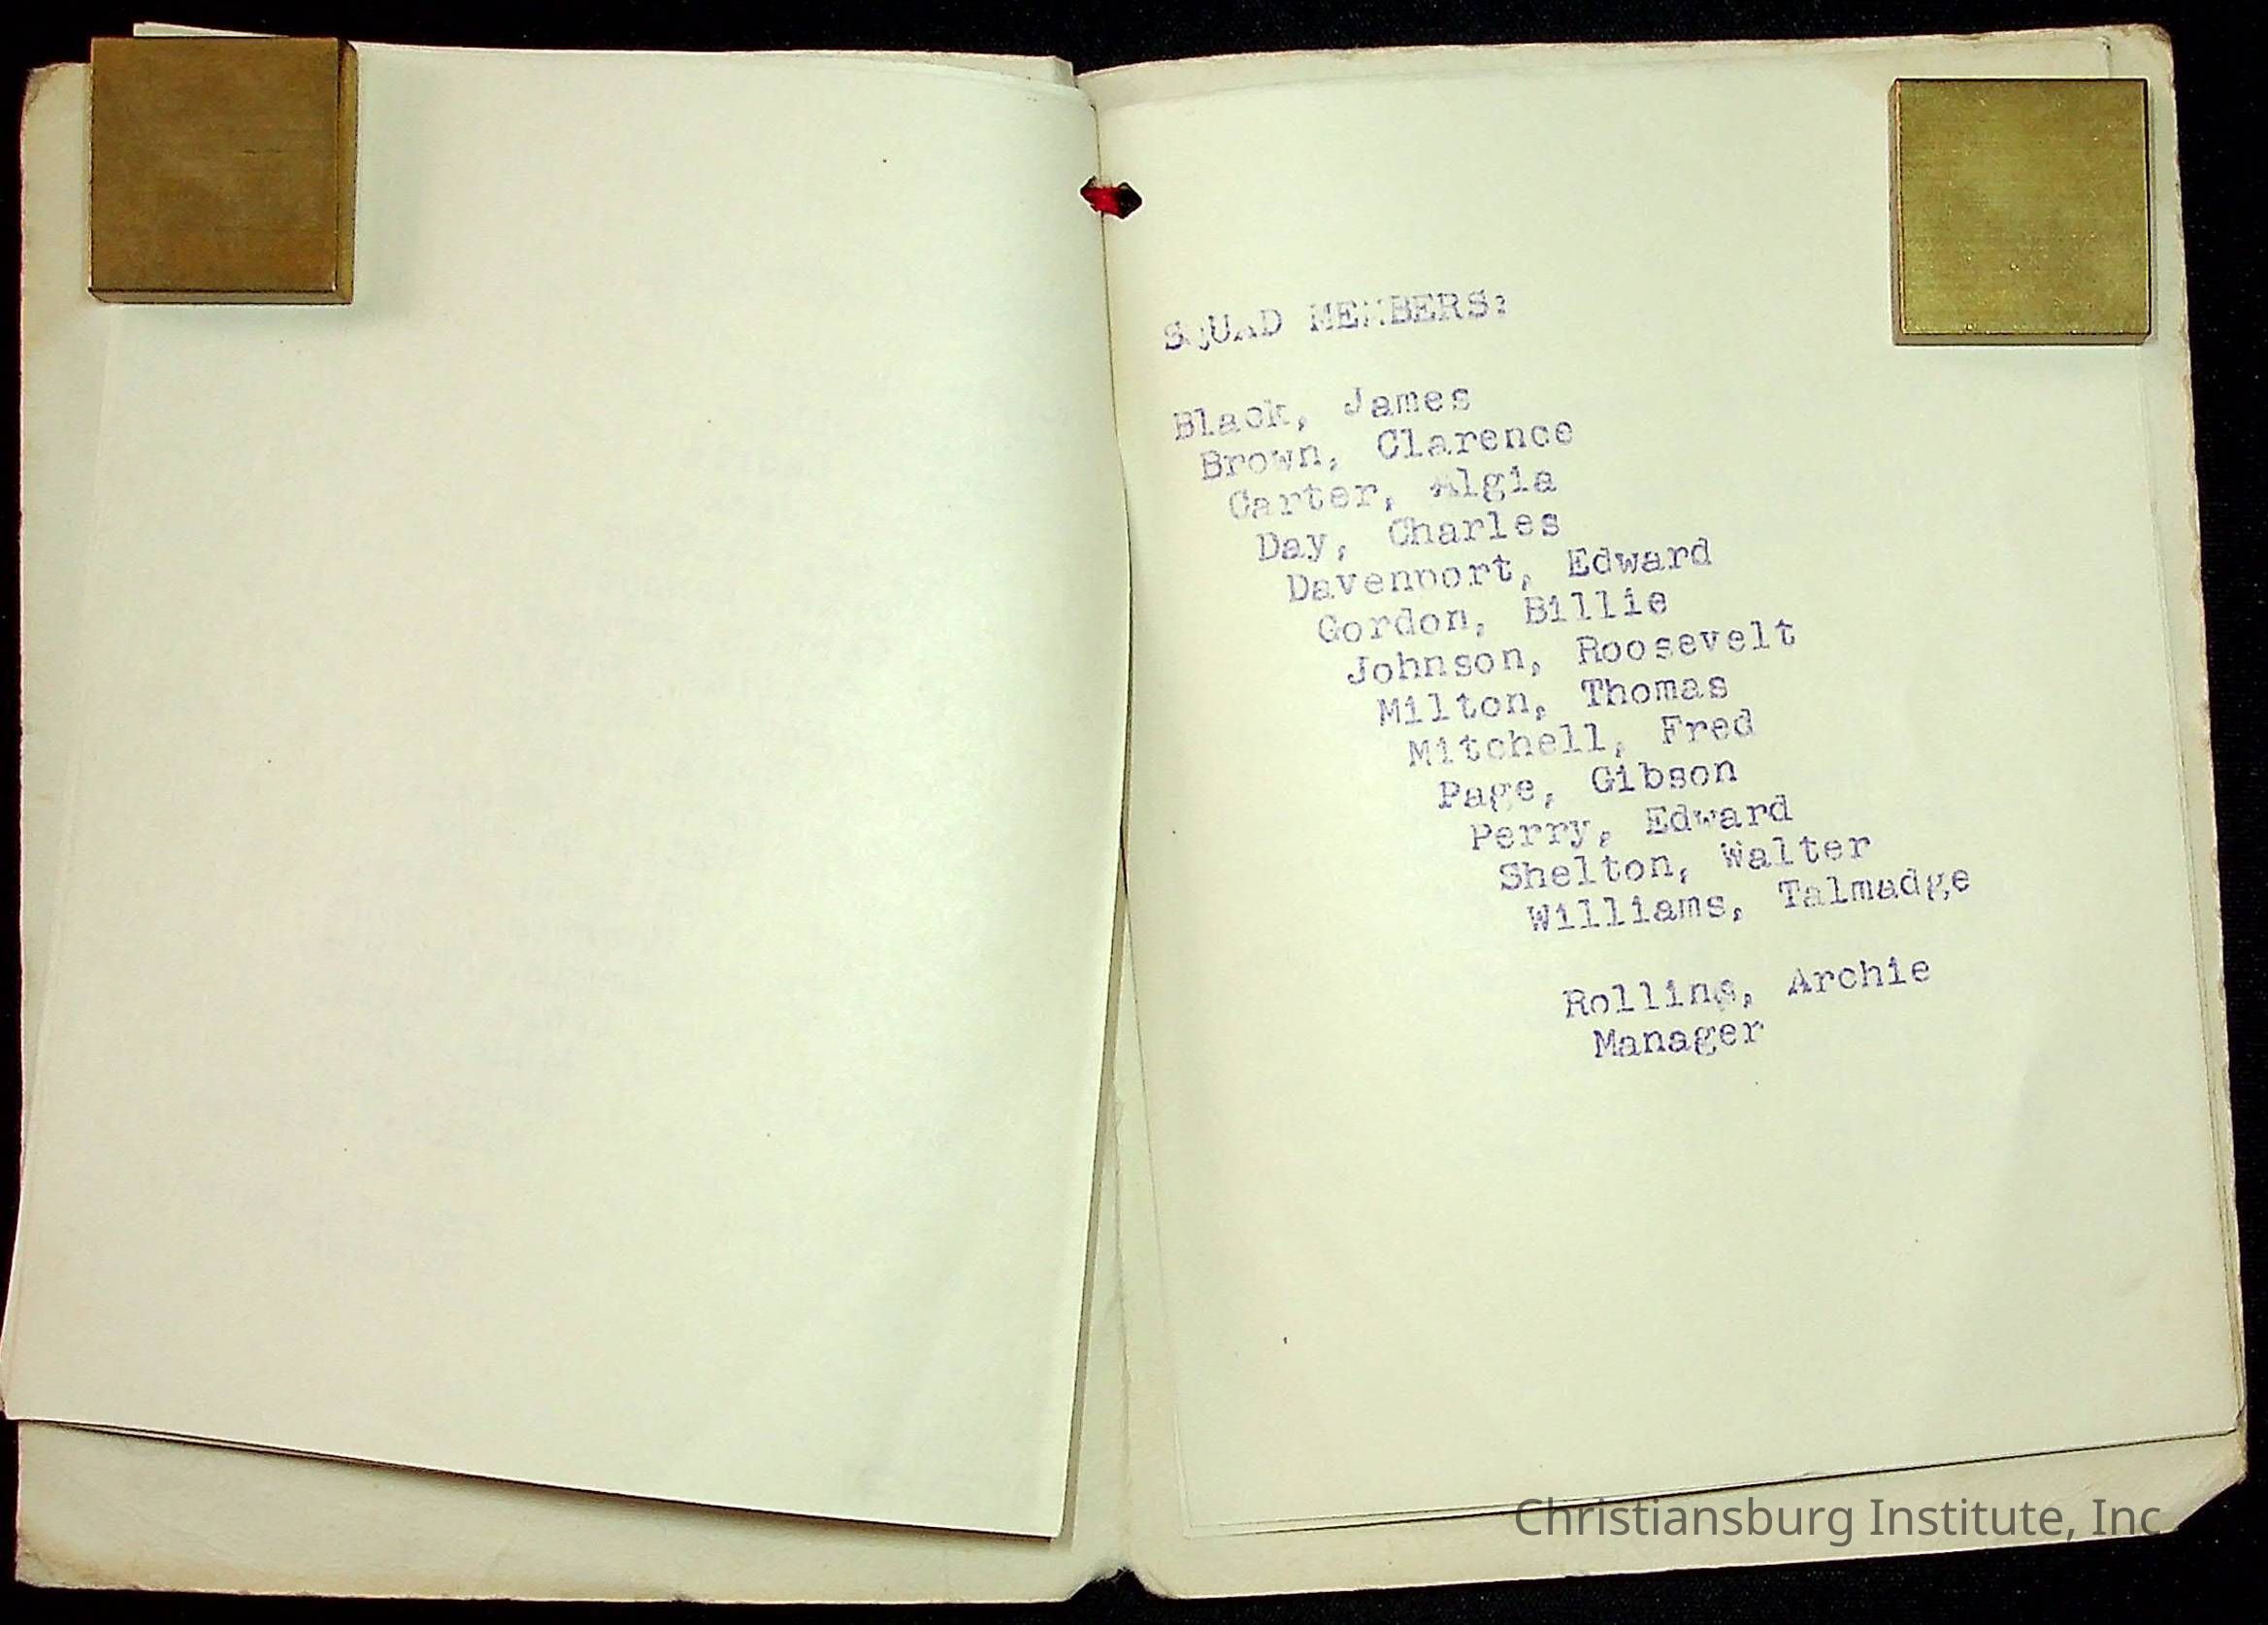 SQUAD MEMBERS:
Black, James
Brown, Clarence
Carter, Algia
Day, Charles
Davenport, Edward
Gordon, Billie
Johnson, Roosevelt
Milton, Thomas
Mitchell, Fred
Page, Gibson
Perry, Edward
Shelton, Walter
Williams, Talmadge
Rollins, Archie
Manager
Christiansburg Institute, Inc.